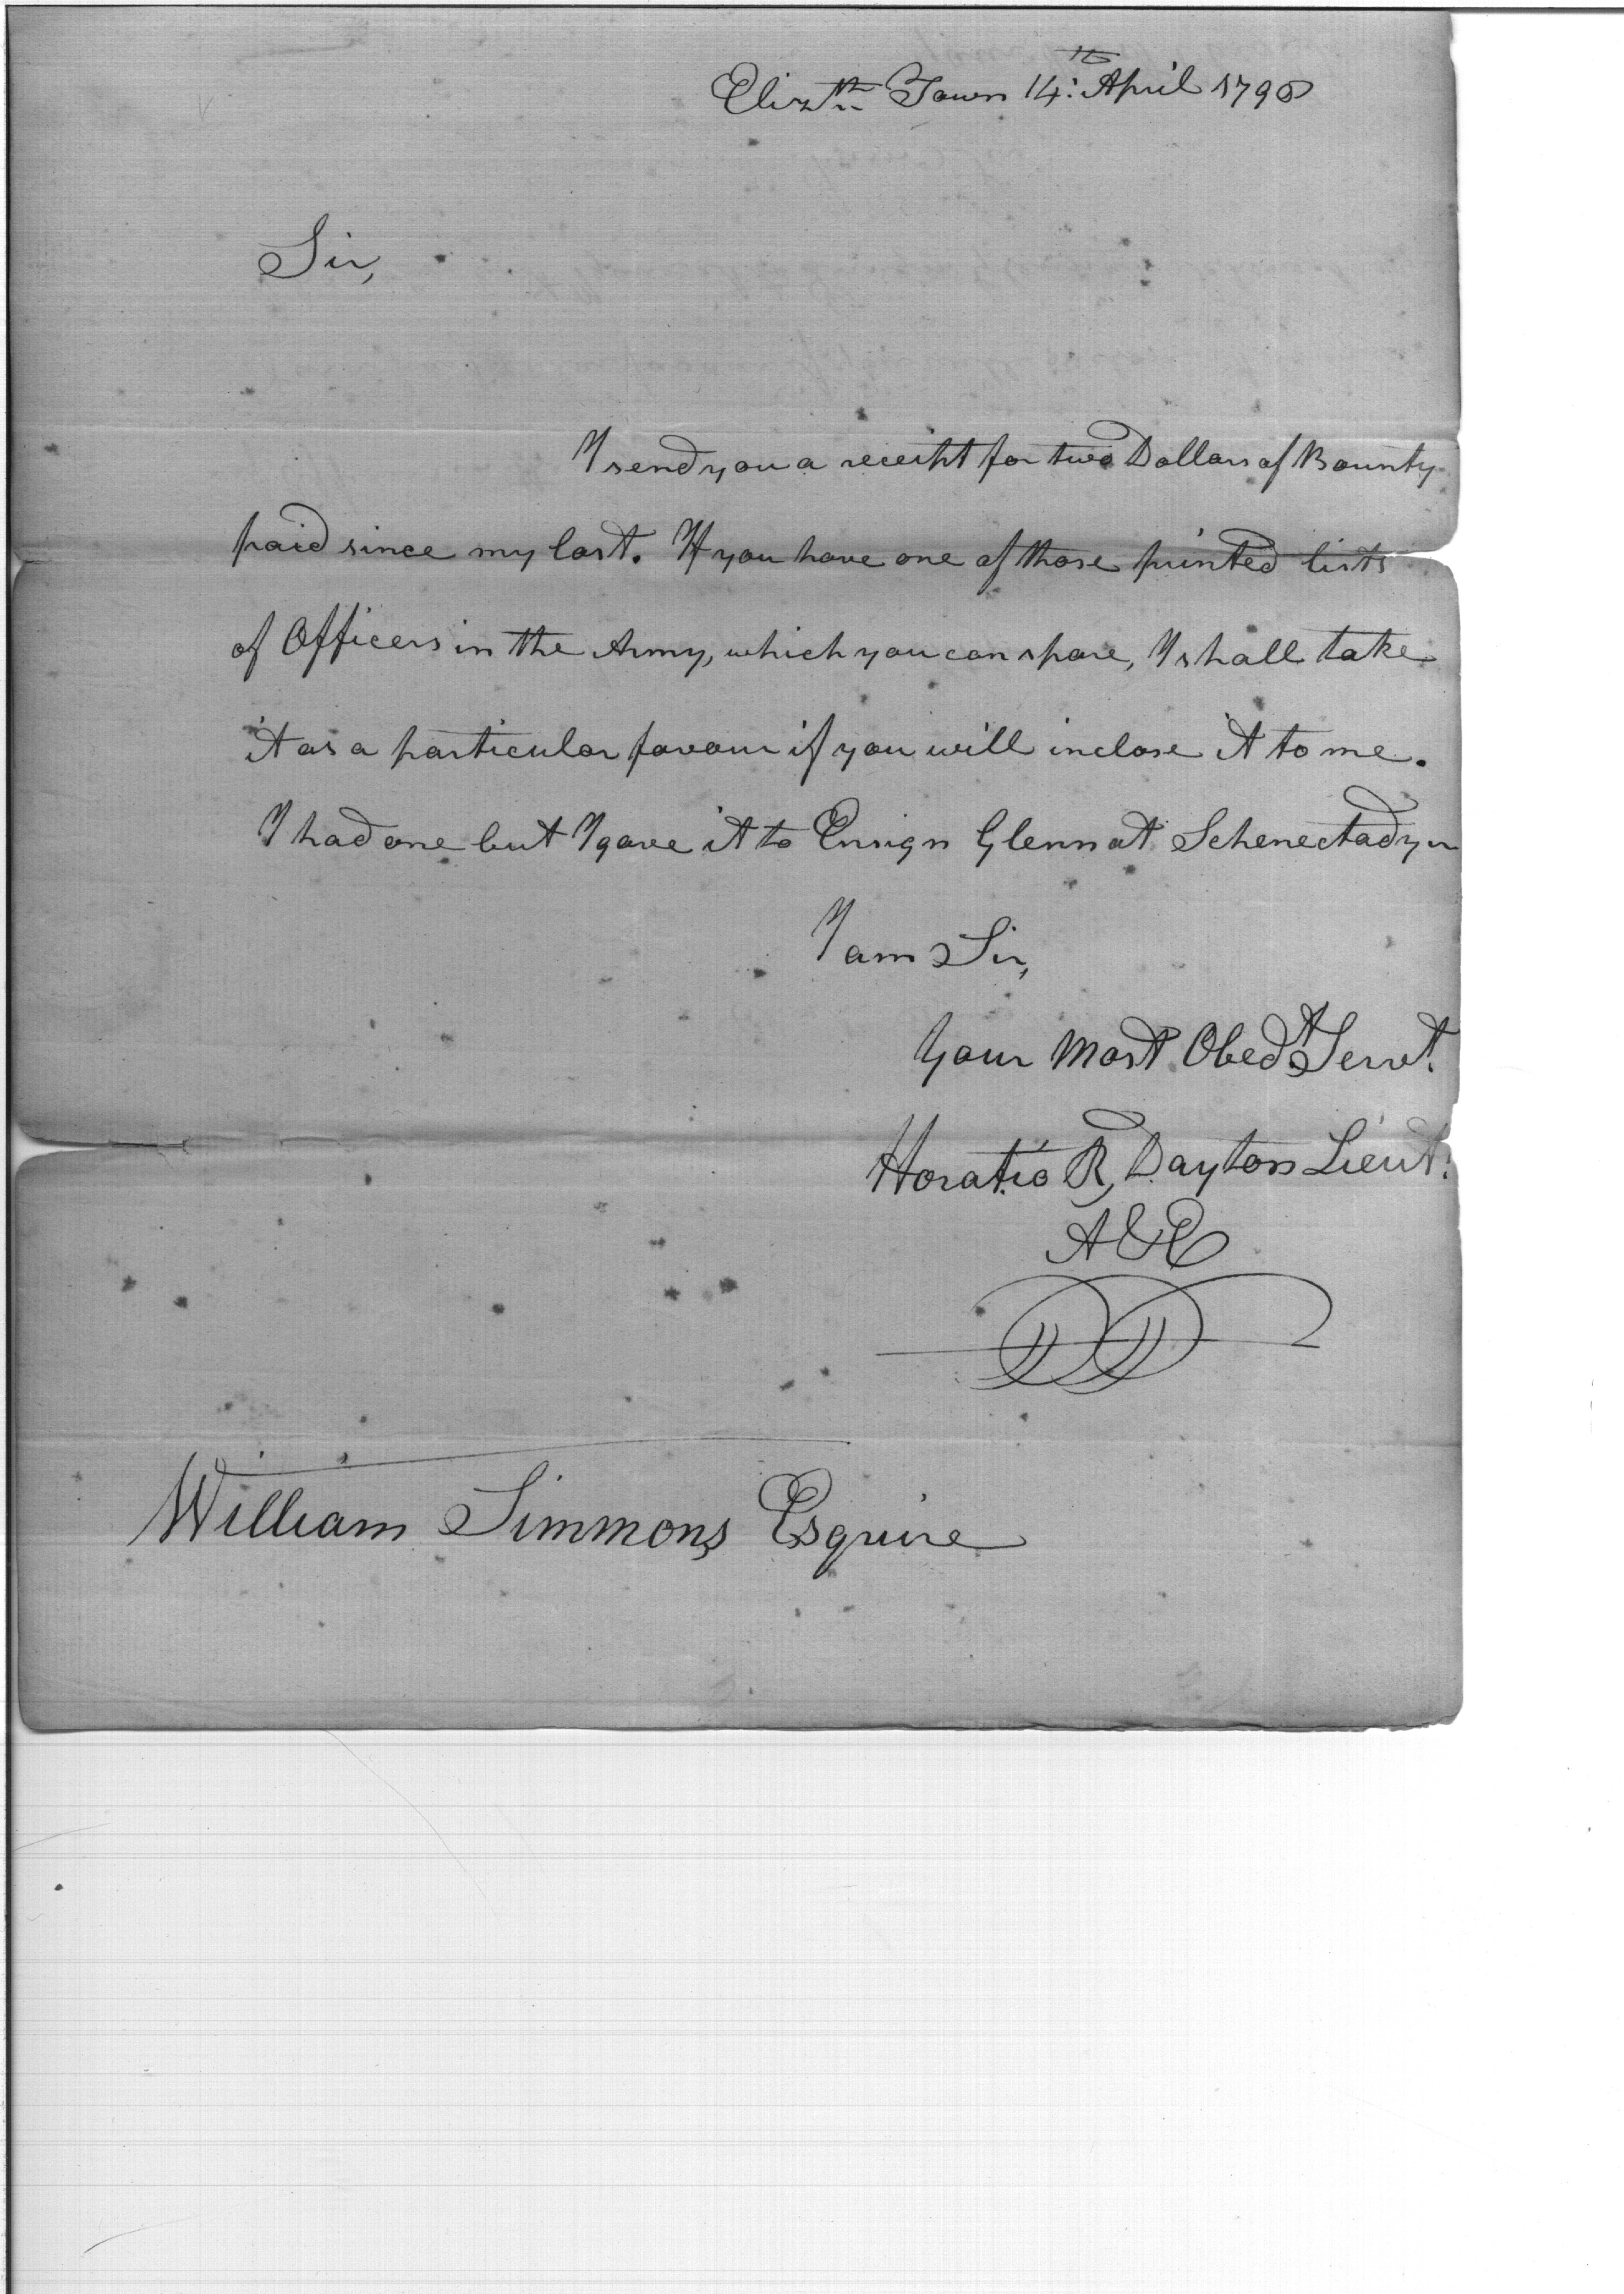 Elizth Town 14th April 1798
Sir,
I send you a receipt for two Dollars of Bounty
paid since my last. If you have one of those printed lists
of Officers in the Army, which you can spare, I shall take
it as a particular favour if you will inclose it to me.
I had one but I gave it to Ensign Glenn at Schenectady
I am Sir,
Your Most Obedt Servt.
Horatio R, Dayton Lieut.
A & E
William Simmons Esquire